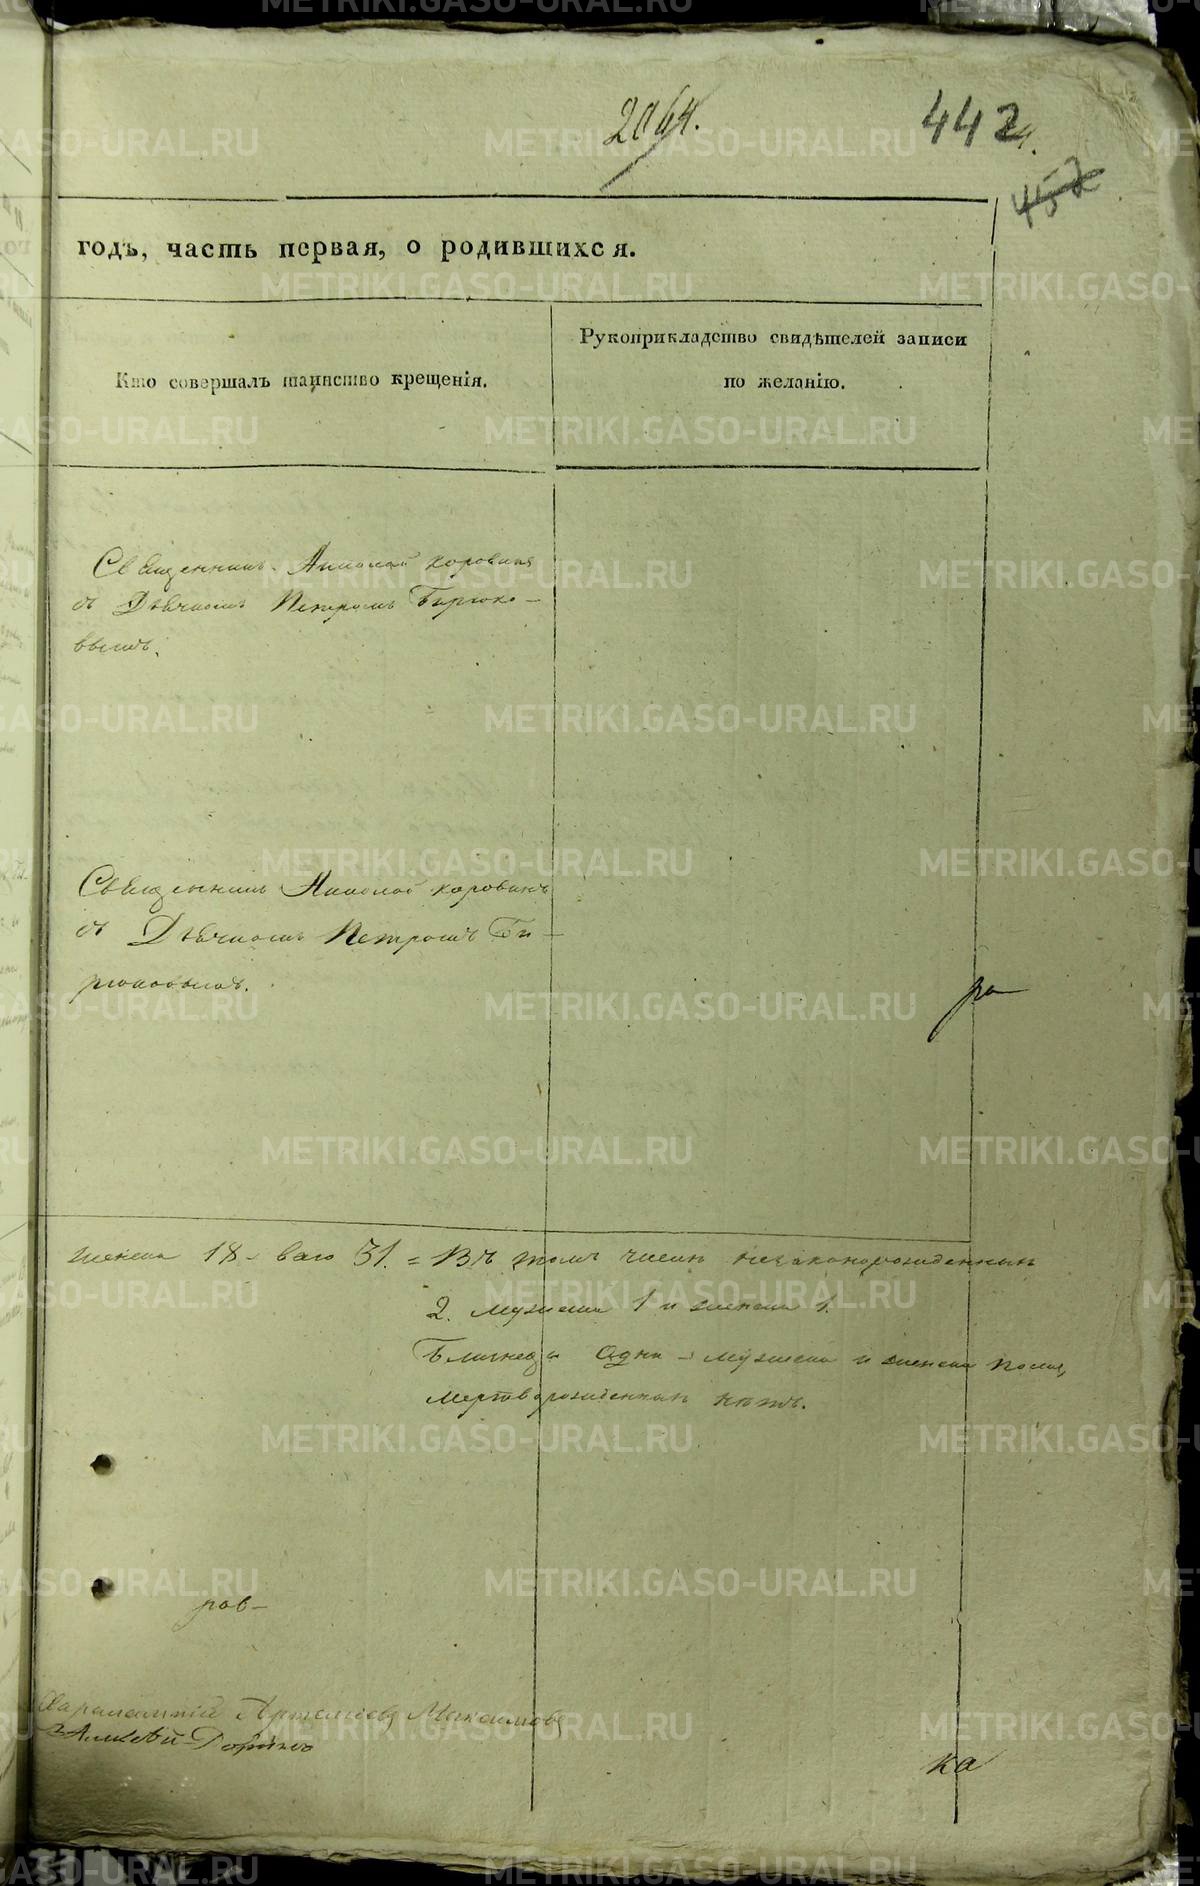 2064.
442
457
годъ, часть первая, о родившихся.
Кто совершалъ таинство крещенія.
Рукоприкладство свидѣтелей записи
по желанію.
Священникъ Николай Коровинъ
съ Дьячкомъ Петромъ Бирюко-
вымъ.
Священникъ Николай Коровинъ
съ Дьячкомъ Петромъ Би-
рюковымъ.
ра
женска 18 - всего 31. = Въ томъ числѣ незаконорожденныхъ
2. мужеска 1 и женска 1.
Близнецы одни - мужеска и женска пола,
мертворожденныхъ нѣтъ.
ров-
Харалампій
Алексѣй
ка
METRIKI.GASO-URAL.RU